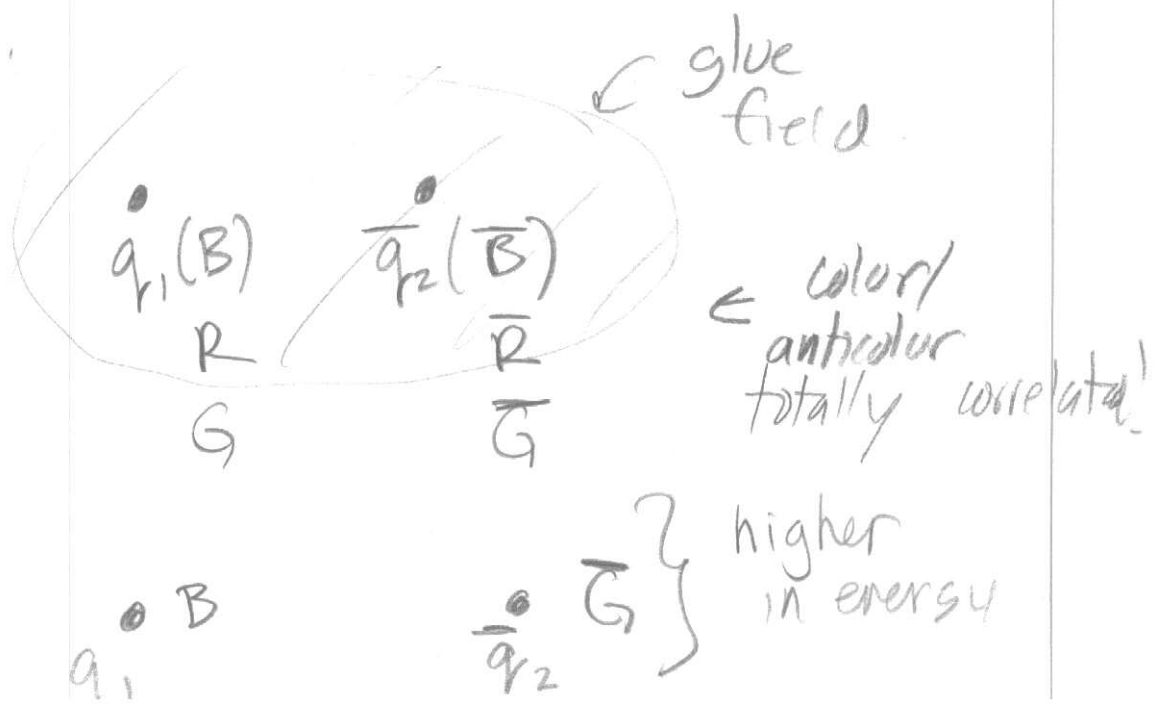 glue
field
q₁(B) q̅₂(B̅)
R R̅
G G̅
← color/
anticolor
totally correlated!
higher
in energy
B G̅
q₁ q̅₂